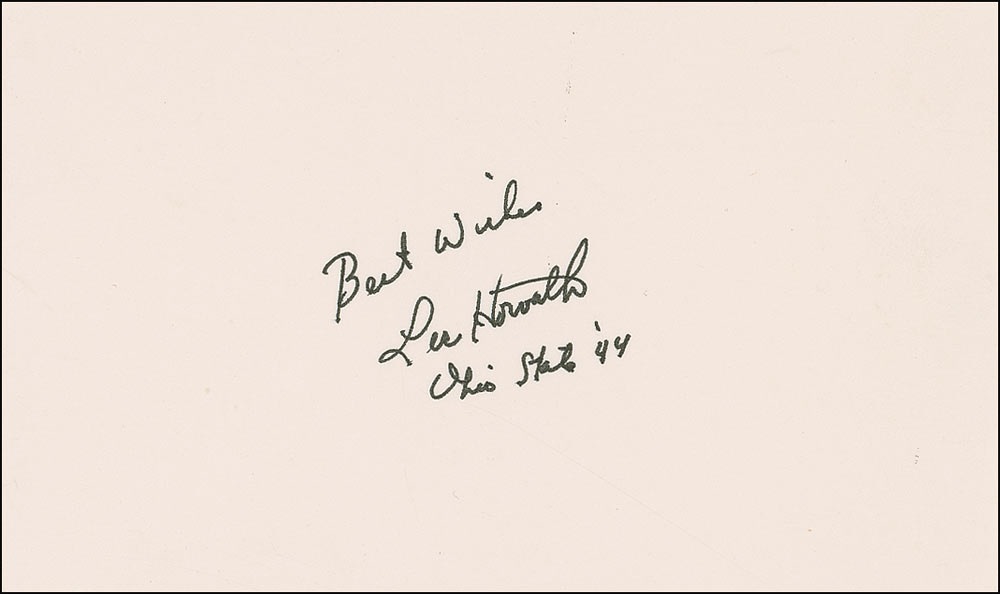 Best Wishes
Les Horvath
Ohio State '44